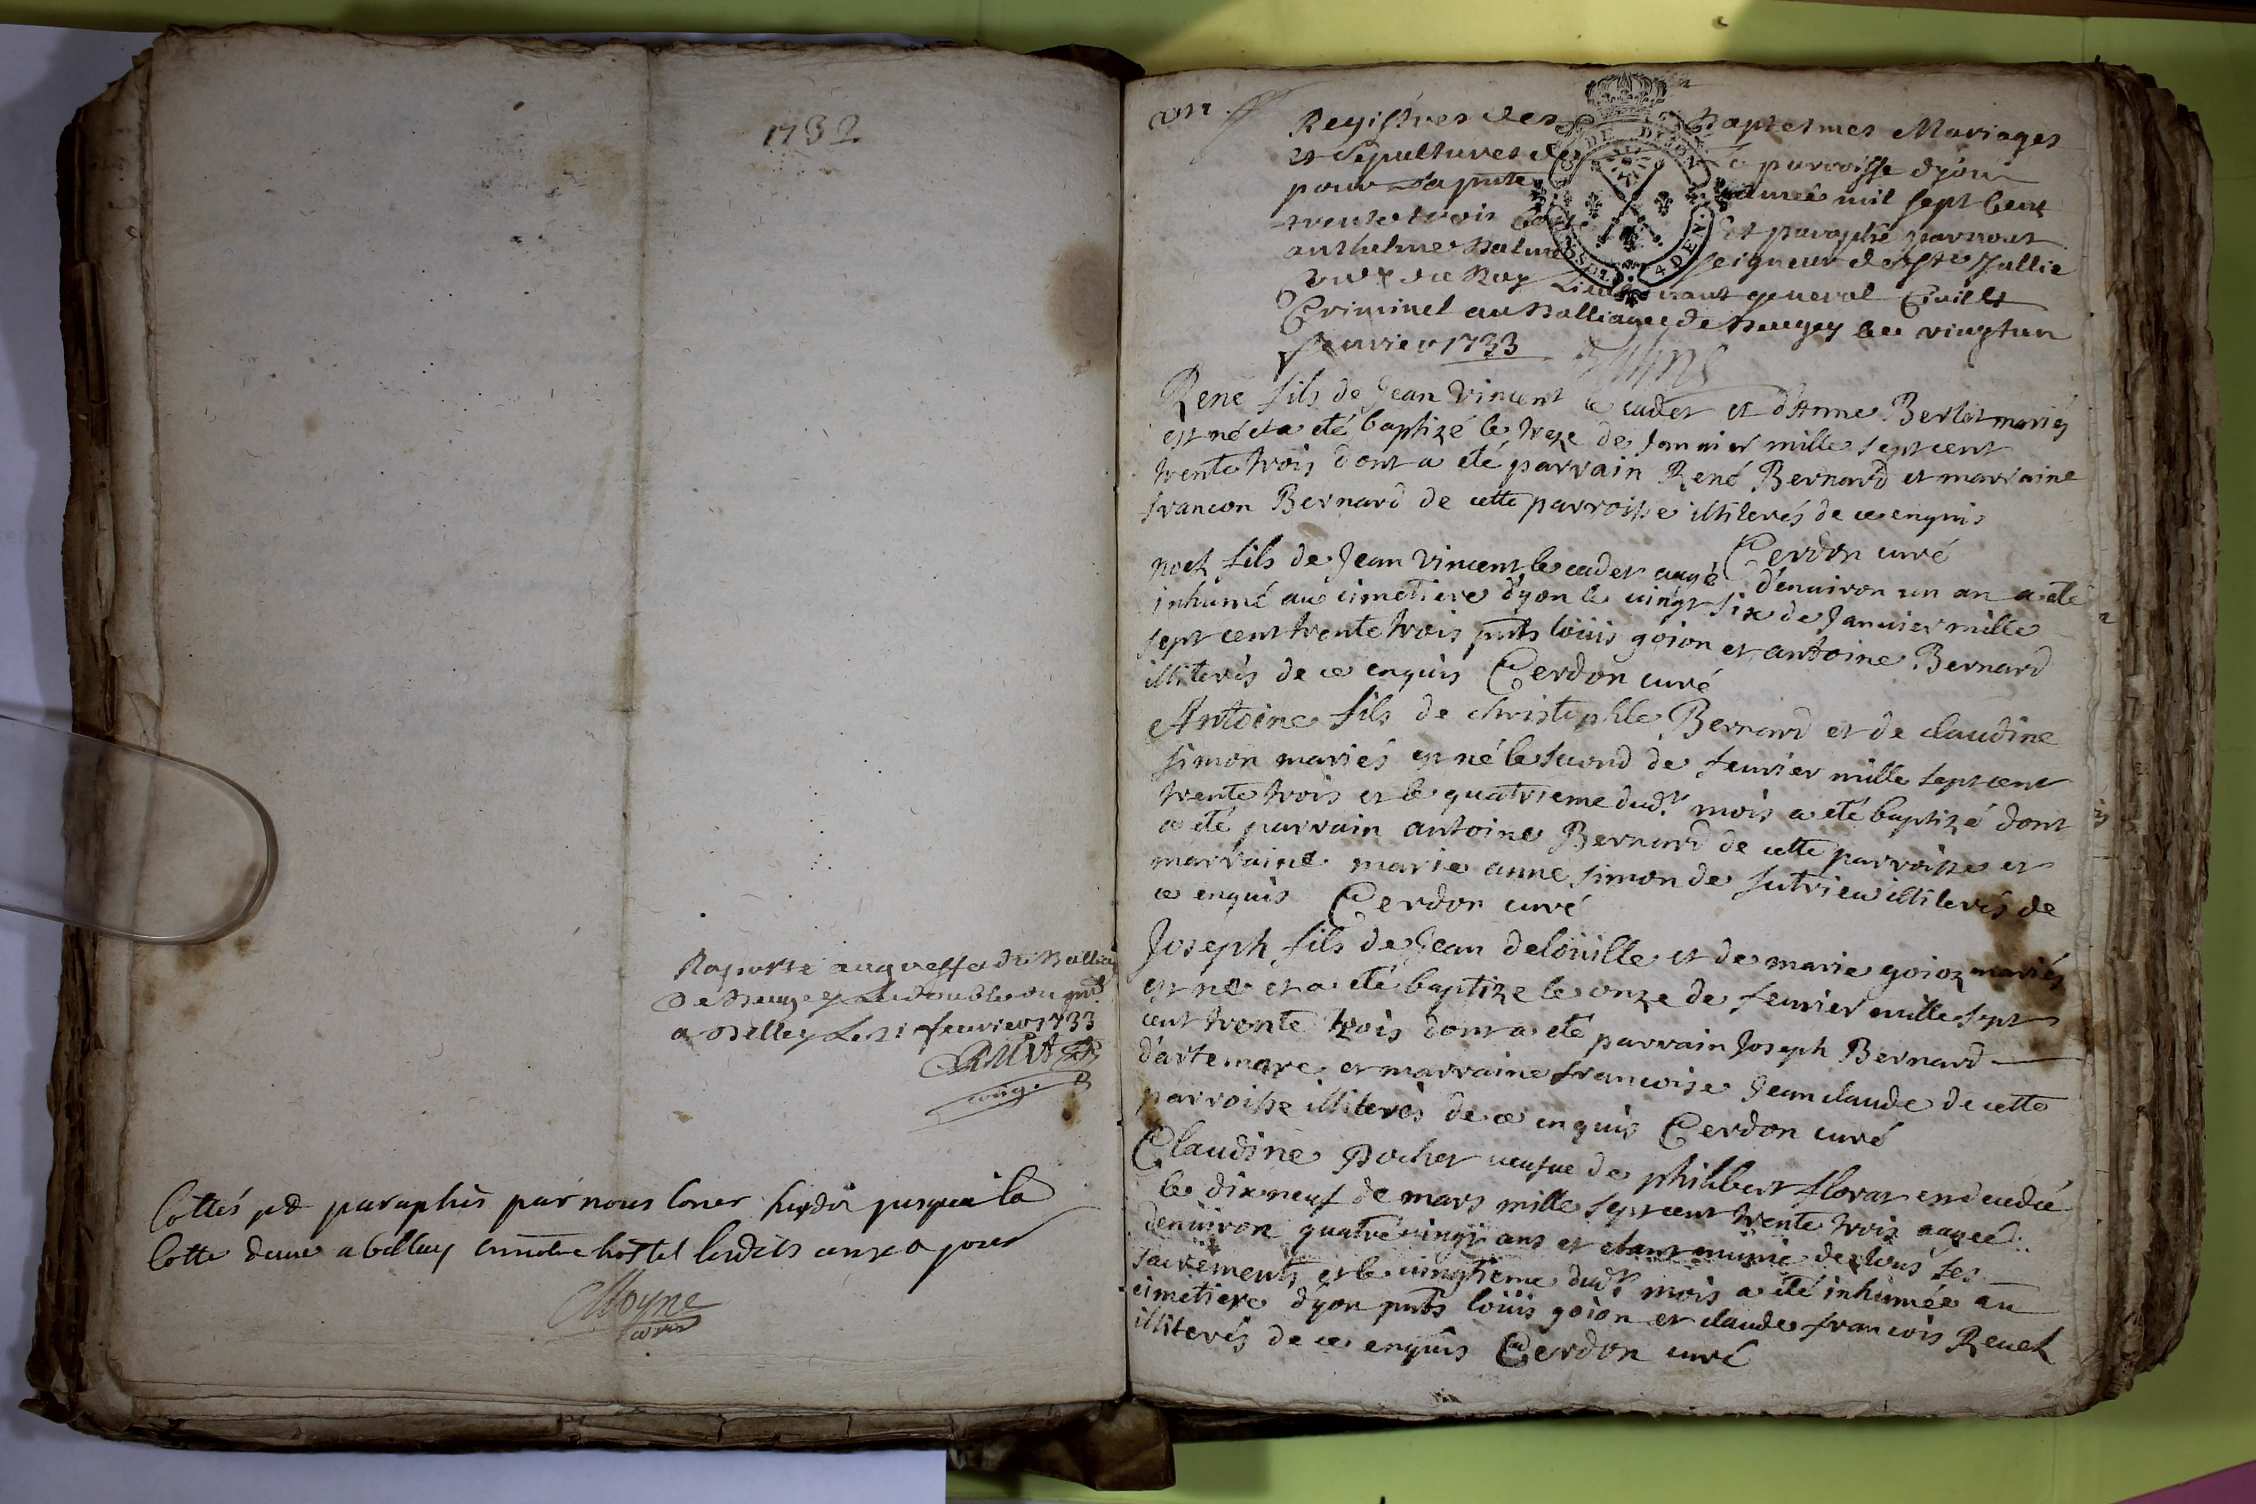 1732
Raporté au greffe du Balliage
de Beugey le double du pnt
a Belley le 21 feurier 1733
Cottés et paraphés par nous soner jusqua la
Cotte deuse a belley en notre hostel lesdits an et jour
Registres des Baptesmes Mariages
et Sepultures de la parroisse dyon
pour La pnte année mil sept Cent
trente trois et paraphé par nous
anthelme Balme seigneur de Ste Jullie
du Roy Lieutenant general Ciuil et
Criminel au Balliage de Beugey ce vingt un
Januier 1733
DIJON
GEN. 4 DEN.
René fils de Jean Vincent le cadet et d'Anne Berlet mariés
est né et a été baptizé le treze de Januier mille sept cent
trente trois dont a été parrain René Bernard et marraine
francon Bernard de cette parroisse illiterés de ce enquis
Cerdon curé
noel fils de Jean Vincent le cadet augé d'enuiron un an a été
inhumé au cimetiere dyon le uingt six de Januier mille
sept cent trente trois pnts loüis goion et antoine Bernard
illiterés de ce enquis Cerdon curé
Antoine fils de christophle Bernard et de claudine
simon mariés est né le second de feurier mille sept cent
trente trois et le quatrieme dudt mois a été baptizé dont
a été parrain antoine Bernard de cette parroisse et
marraine marie anne simon de sutrieu illiterés de
ce enquis Cerdon curé
Joseph fils de Jean deloüille et de marie goioz mariés
est né et a été baptize le onze de feurier mille sept
cent trente trois dont a été parrain Joseph Bernard
d'artemare et marraine francoise Jean claude de cette
parroisse illiterés de ce enquis Cerdon curé
Claudine Rochet ueufue de philibert florat en decedée
le dix neuf de mars mille sept cent trente trois augée
denuiron quatre uingt ans et etant munie de tous ses
sacrements et le uingtieme dudt mois a été inhumée au
cimetiere dyon pnts loüis goion et claude francois Reuel
illiterés de ce enquis Cerdon curé